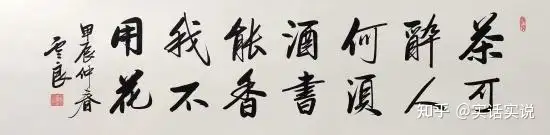 茶可
醉人
何須
酒書
能香
我不
用花
甲辰仲春
雲良
知乎 @实话实说